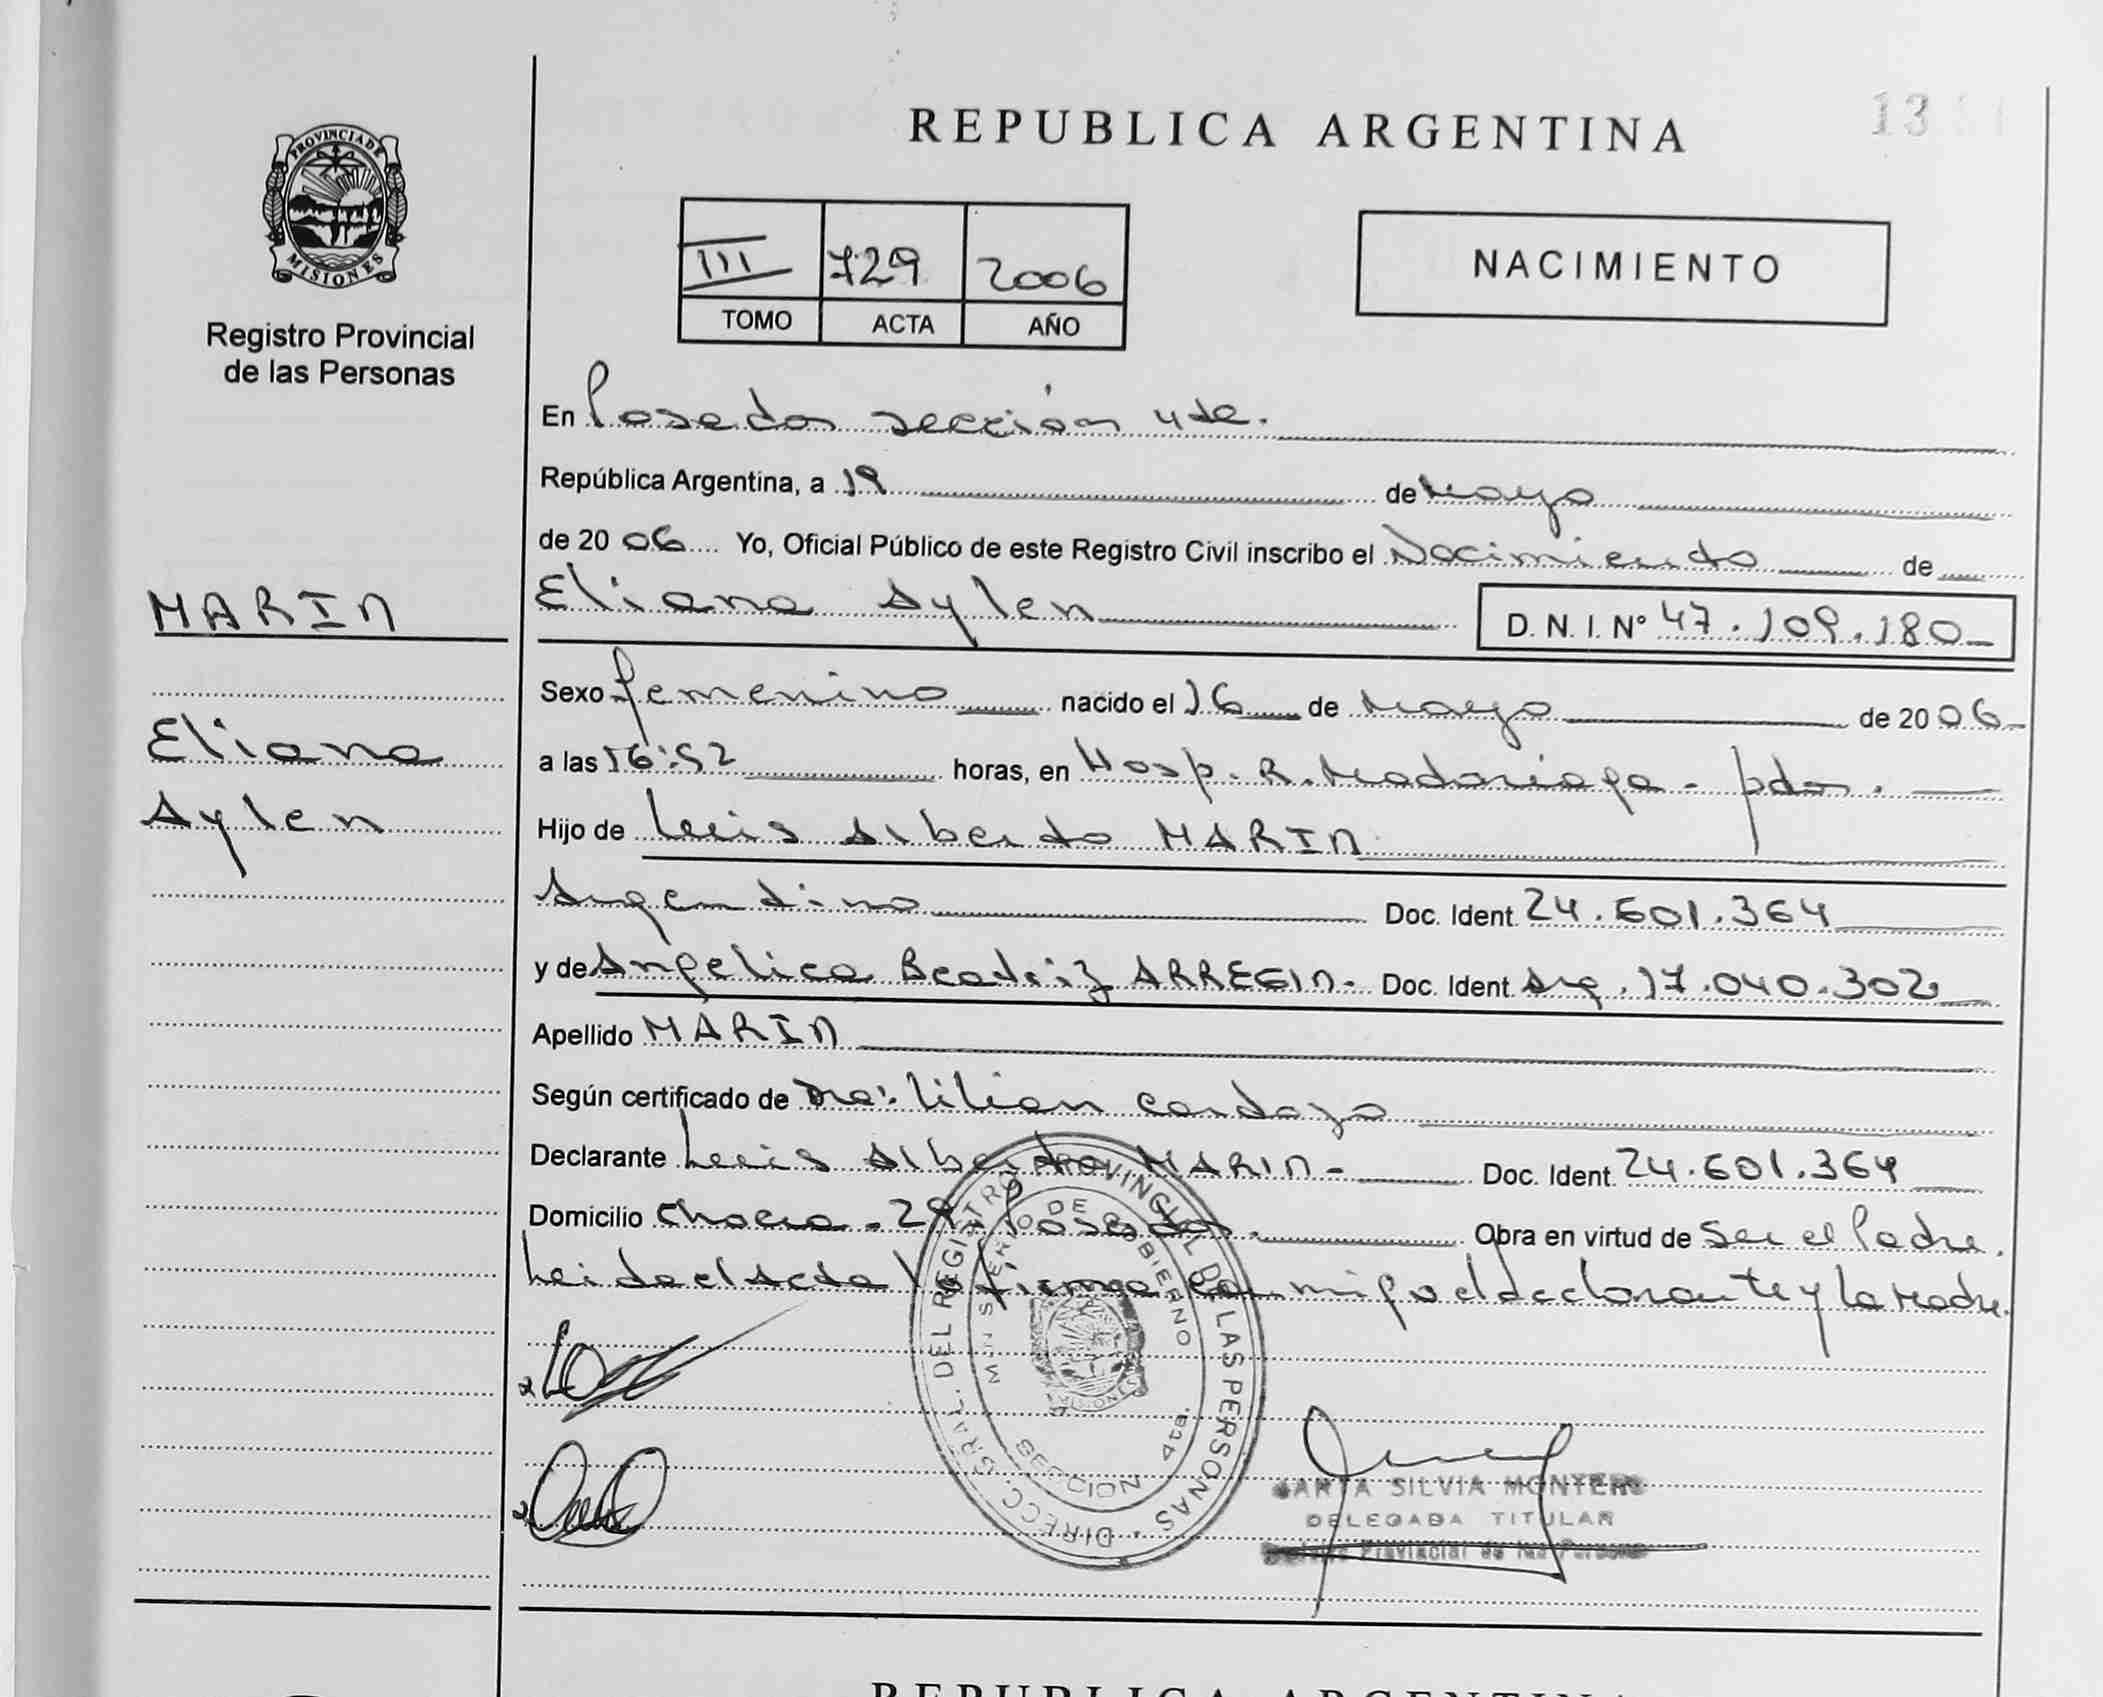 REPUBLICA ARGENTINA
13
PROVINCIA DE MISIONES
Registro Provincial
de las Personas
III 729 2006
TOMO ACTA AÑO
NACIMIENTO
En Posadas sección 4ta.
República Argentina, a 19 de Mayo
de 2006 Yo, Oficial Público de este Registro Civil inscribo el Nacimiento de
MARIN
Eliana Aylen
D. N. I. Nº 47.109.180
Sexo femenino nacido el 16 de Mayo de 2006
Eliana
Aylen
a las 16:52 horas, en Hosp. R. Madariaga - pdas.
Hijo de Luis Alberto MARIN
Argentino Doc. Ident. 24.601.364
y de Angelica Beatriz ARREGIN. Doc. Ident. Arg. 17.040.302
Apellido MARIN
Según certificado de Dra. Lilian Cardozo
Declarante Luis Alberto MARIN Doc. Ident. 24.601.364
Domicilio Chacra - 29. Posadas. Obra en virtud de Ser el Padre.
Leida el Acta la firma con migo el declarante y la Madre.
DIRECC. GRAL. DEL REGISTRO PROVINCIAL DE LAS PERSONAS
MINISTERIO DE GOBIERNO
MISIONES
SECCION 4ta.
MARTA SILVIA MONTERO
DELEGADA TITULAR
Registro Provincial de las Personas
REPUBLICA ARGENTINA